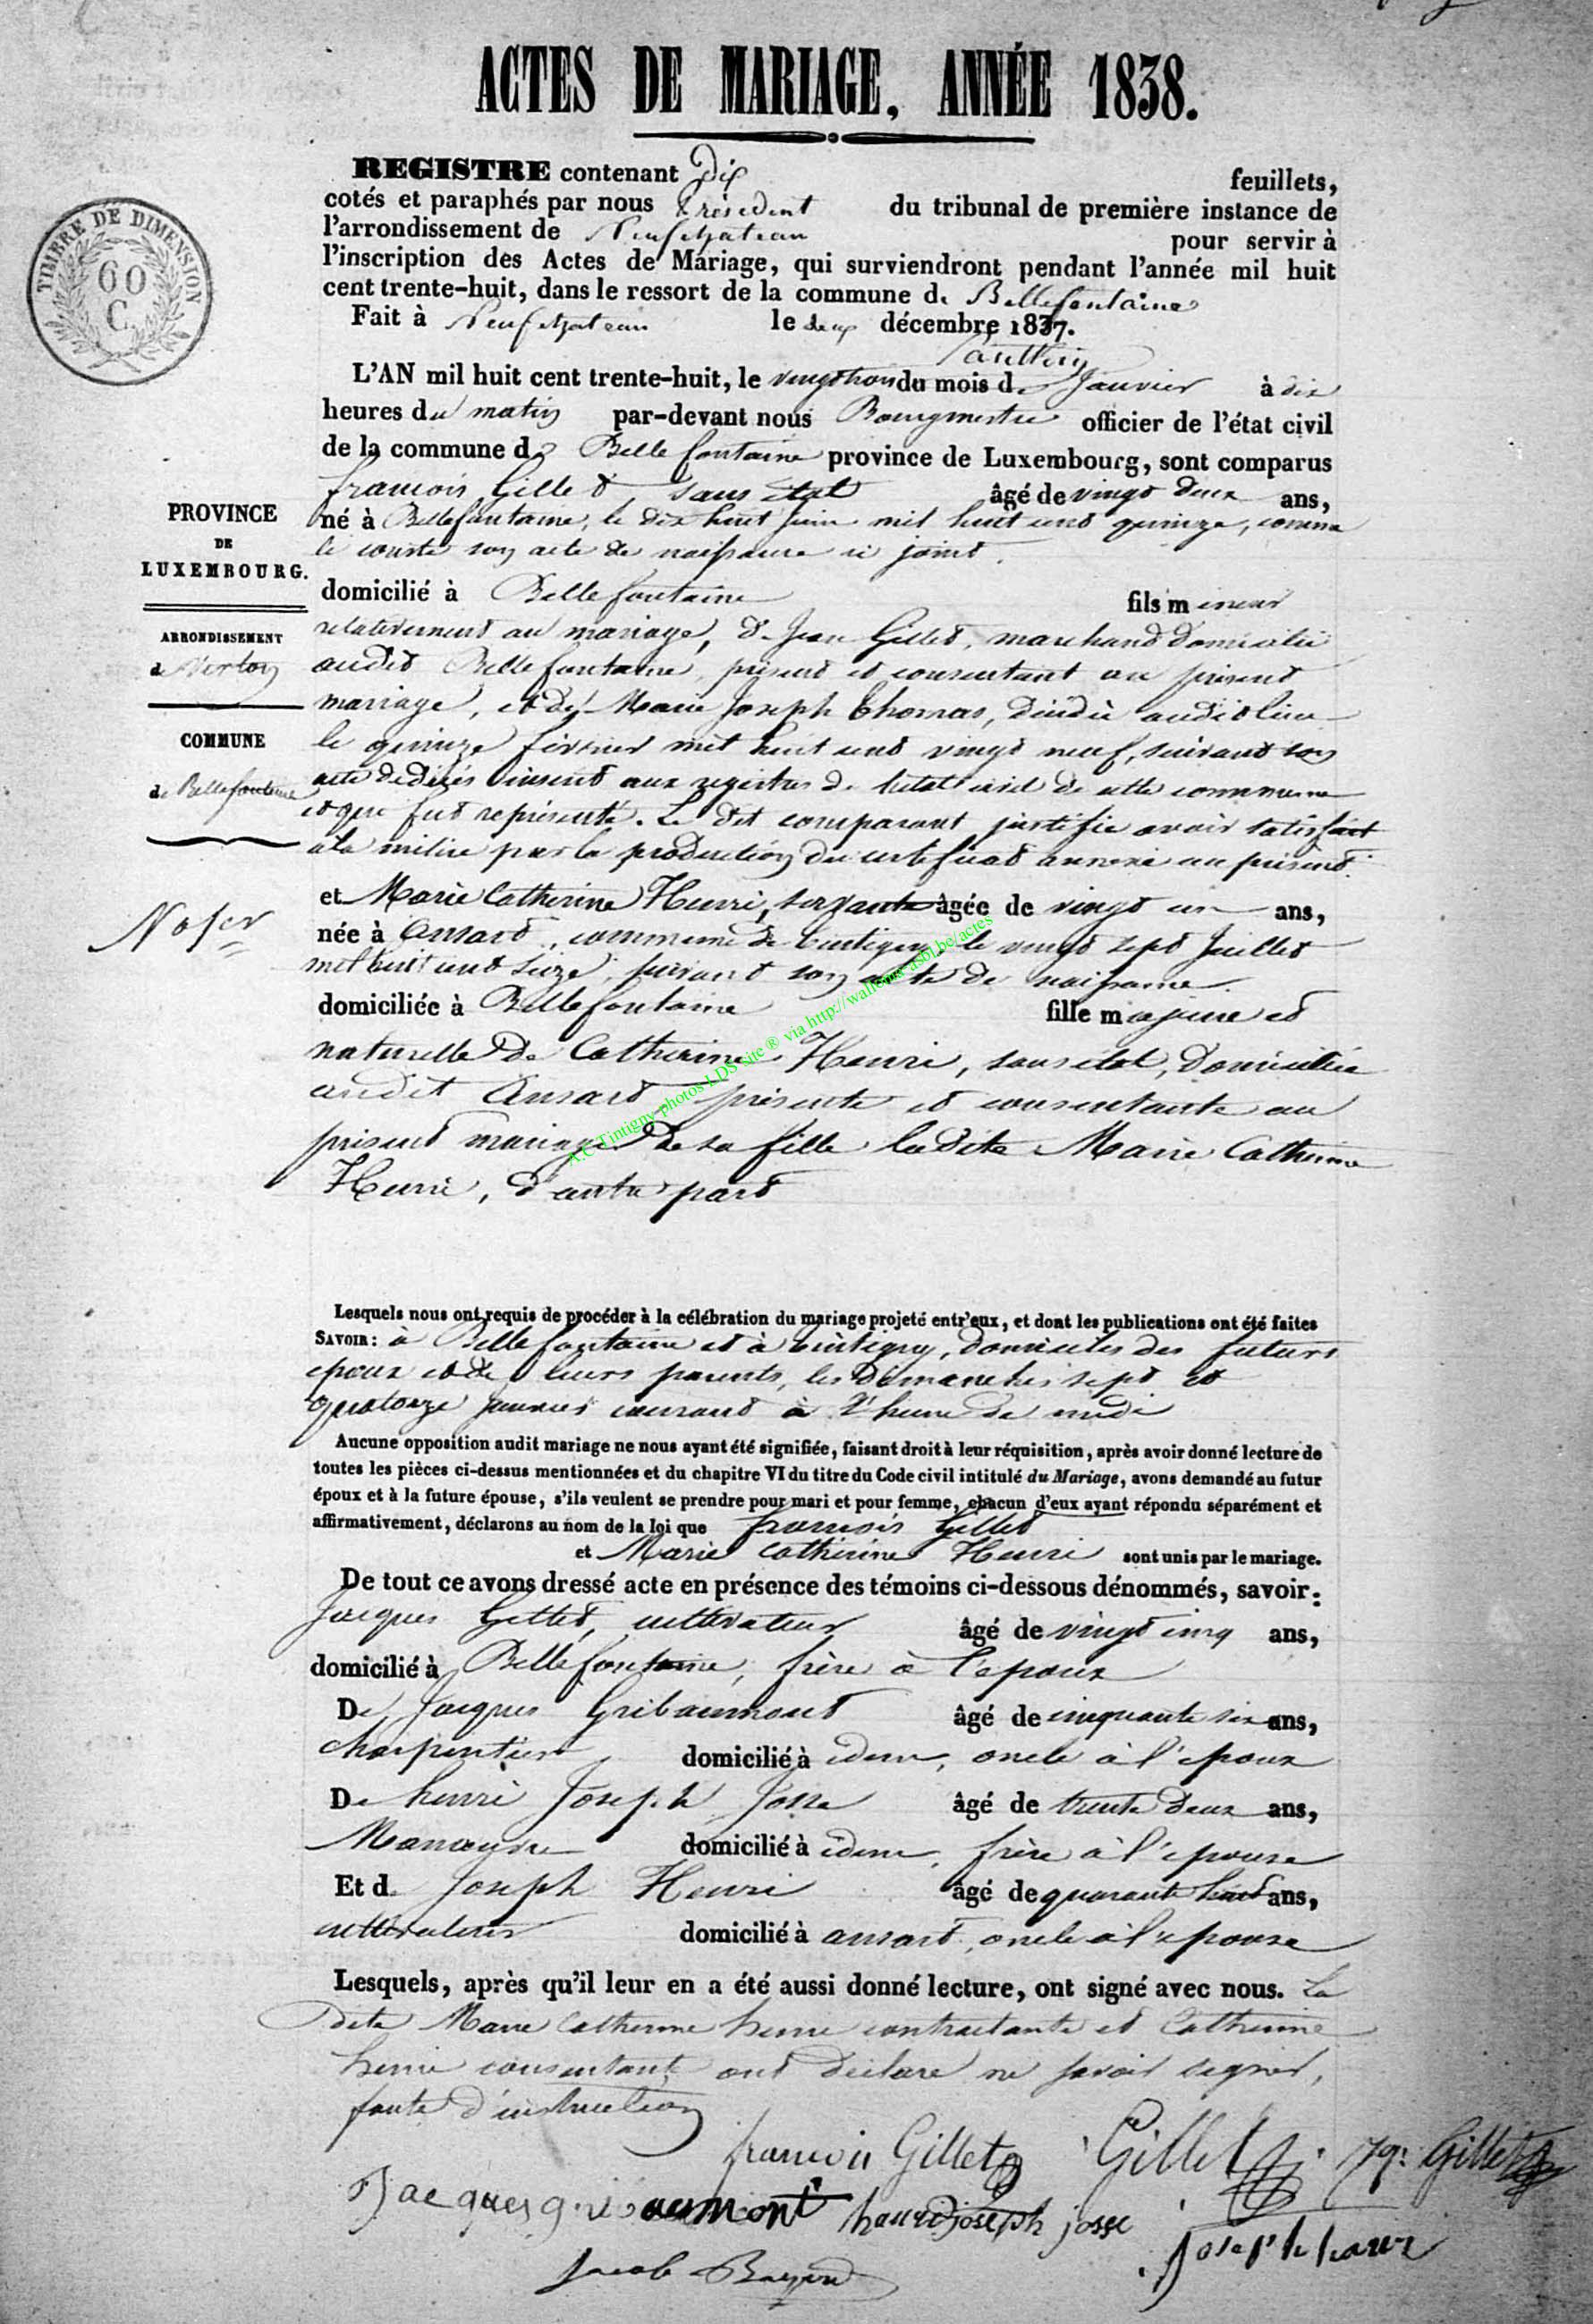 ACTES DE MARIAGE, ANNÉE 1838.
TIMBRE DE DIMENSION
60
C.
REGISTRE contenant Dix feuillets,
cotés et paraphés par nous Président du tribunal de première instance de
l'arrondissement de Neufchateau pour servir à
l'inscription des Actes de Mariage, qui surviendront pendant l'année mil huit
cent trente-huit, dans le ressort de la commune de Bellefontaine
Fait à Neufchateau le deux décembre 1837.
L'AN mil huit cent trente-huit, le vingt trois du mois de Janvier à dix
heures du matin par-devant nous Bourgmestre officier de l'état civil
de la commune de Bellefontaine province de Luxembourg, sont comparus
francois Gillet, sans état âgé de vingt deux ans,
né à Bellefontaine, le dix huit Juin mil huit cent quinze, comme
le conste son acte de naissance ci joint.
domicilié à Bellefontaine fils mineur
relativement au mariage, de Jean Gillet, marchand domicilié
audit Bellefontaine, présent et consentant au présent
mariage, et de Marie Joseph Thomas, décédée audit lieu
le quinze février mil huit cent vingt neuf, suivant son
acte de décès inséré aux registres de l'état civil de cette commune
et qui fut représenté. Le dit comparant justifie avoir satisfait
à la milice par la production du certificat annexé au présent.
PROVINCE
DE
LUXEMBOURG.
ARRONDISSEMENT
de Virton
COMMUNE
de Bellefontaine
et Marie Catherine Henri, servante âgée de vingt un ans,
née à Ansart, commune de tintigny le vingt sept Juillet
mil huit cent seize, suivant son acte de naissance.
domiciliée à Bellefontaine fille majeure et
naturelle de Catherine Henri, sans état, domiciliée
audit Ansart présente et consentante au
présent mariage de sa fille la dite Marie Catherine
Henri, d'autre part
A.C Tintigny photos LDS site ® via http://wallonia-asbl.be/actes
Lesquels nous ont requis de procéder à la célébration du mariage projeté entr'eux, et dont les publications ont été faites
SAVOIR: à Bellefontaine et à tintigny, domiciles des futurs
époux et de leurs parents, les dimanches sept et
quatorze janvier courant à l'heure de midi
Aucune opposition audit mariage ne nous ayant été signifiée, faisant droit à leur réquisition, après avoir donné lecture de
toutes les pièces ci-dessus mentionnées et du chapitre VI du titre du Code civil intitulé du Mariage, avons demandé au futur
époux et à la future épouse, s'ils veulent se prendre pour mari et pour femme, chacun d'eux ayant répondu séparément et
affirmativement, déclarons au nom de la loi que francois Gillet
et Marie Catherine Henri sont unis par le mariage.
De tout ce avons dressé acte en présence des témoins ci-dessous dénommés, savoir:
Jacques Gillet, cultivateur âgé de vingt cinq ans,
domicilié à Bellefontaine, frère à l'époux
De Jacques Gribaumont âgé de cinquante six ans,
charpentier, domicilié à idem, oncle à l'époux
De henri Joseph Josse âgé de trente deux ans,
Manœuvre domicilié à idem, frère à l'épouse
Et de Joseph Henri âgé de quarante huit ans,
cultivateur domicilié à ansart, oncle à l'épouse
Lesquels, après qu'il leur en a été aussi donné lecture, ont signé avec nous. La
dite Marie Catherine henri contractante et Catherine
henri consentante ont déclaré ne savoir signer,
faute d'instruction
francois Gillet Gillet Jqs Gillet
Jacques gribaumont henri joseph josse
Joseph henri
Jacob